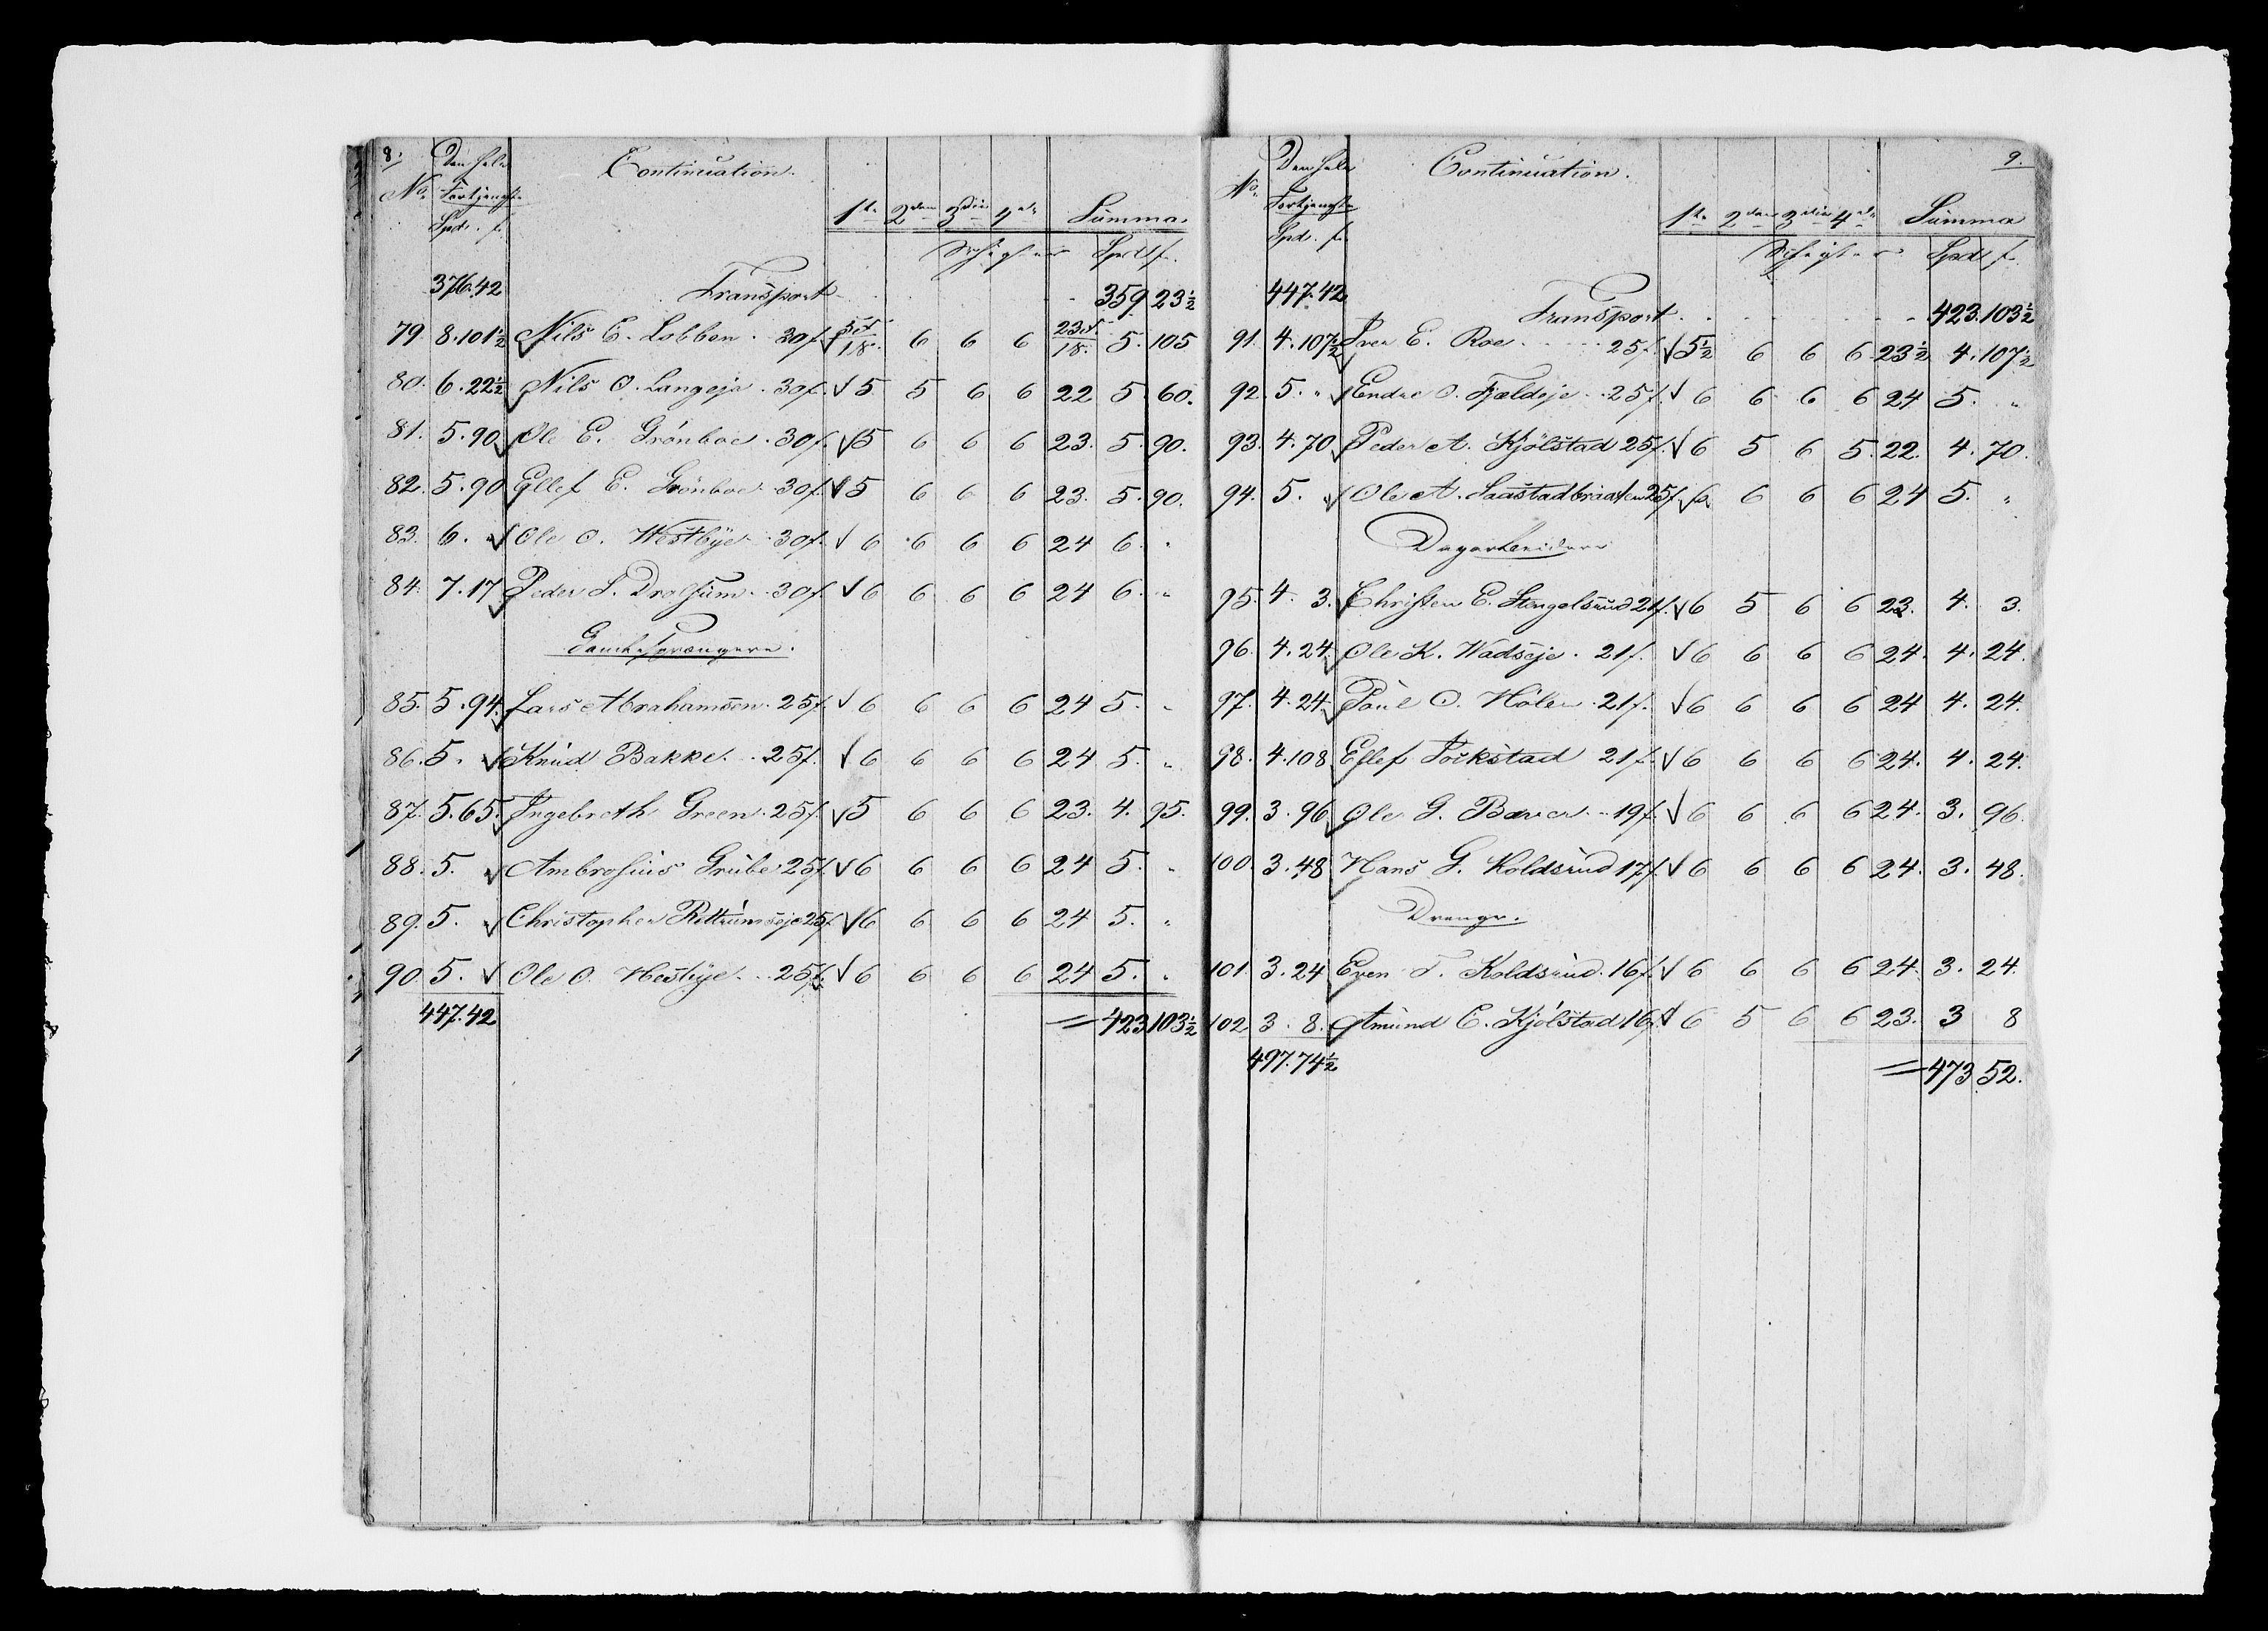 8.
Continuation.
No. Den hele Fortjeneste Spd. f. 1ste 2den 3die 4de Summa.
Schigter Spd f.
376.42 Transport 359 23½
79. 8.101½ Nils E. Lobben. 30f. 6 6 6 5. 105
80. 6.22½ Nils O. Langeje. 30f. 5 5 6 6 22 5 60.
81. 5.90 Ole E. Grönboe. 30f. 5 6 6 6 23. 5. 90.
82. 5.90 Ellef E. Grönboe. 30f. 5 6 6 6 23. 5. 90.
83. 6. " Ole O. Westbye. 30f. 6 6 6 6 24 6. "
84. 7.17 Peder S. Drolsum. 30f. 6 6 6 6 24 6. "
85. 5.94. Lars Abrahamsen. 25f. 6 6 6 6 24 5. "
86. 5. " Knud Bakke. 25f. 6 6 6 6 24 5. "
87. 5.65. Ingebreth Green. 25f. 5 6 6 6 23. 4. 95.
88. 5. " Ambrosius Grube 25f. 6 6 6 6 24 5. "
89. 5. " Christopher Rettumseje 25f. 6 6 6 6 24 5. "
90 5. Ole O. Hestbye. 25f. 6 6 6 6 24 5. "
447.42 = 423 103½
9.
Continuation.
No. Den hele Fortjeneste Spd. f. 1ste 2den 3die 4de Summa
Schigter Spd f.
447.42 Transport. 423.103½
91. 4.107½ Iver E. Roe. 25f. 5½ 6 6 6 23½ 4.107½
92. 5. " Endre O. Fjeldeje. 25f. 6 6 6 6 24 5. "
93. 4.70 Peder A. Kjölstad 25f. 6 5 6 5. 22. 4. 70.
94. 5. " Ole A. Saastadbraaten 25f. 6 6 6 6 24 5. "
Dagarbeidere
95. 4. 3. Christen E. Stengelsrud 21f. 6 5 6 6 23. 4. 3.
96. 4.24. Ole K. Wadseje. 21f. 6 6 6 6 24. 4. 24.
97. 4.24. Poul O. Hölen. 21f. 6 6 6 6 24 4. 24.
98. 4.108 Ellef Fockstad 21f. 6 6 6 6 24. 4. 24.
99. 3.96 Ole G. Boerer. 19f. 6 6 6 6 24. 3. 96.
100. 3.48 Hans G. Koldsrud 17f. 6 6 6 6 24. 3. 48.
Drenge.
101. 3.24 Even T. Koldsrud. 16f. 6 6 6 6 24. 3. 24.
102 3. 8. Amund E. Kjölstad 16f. 6 5 6 6 23. 3 8
497.74½ = 473 52.